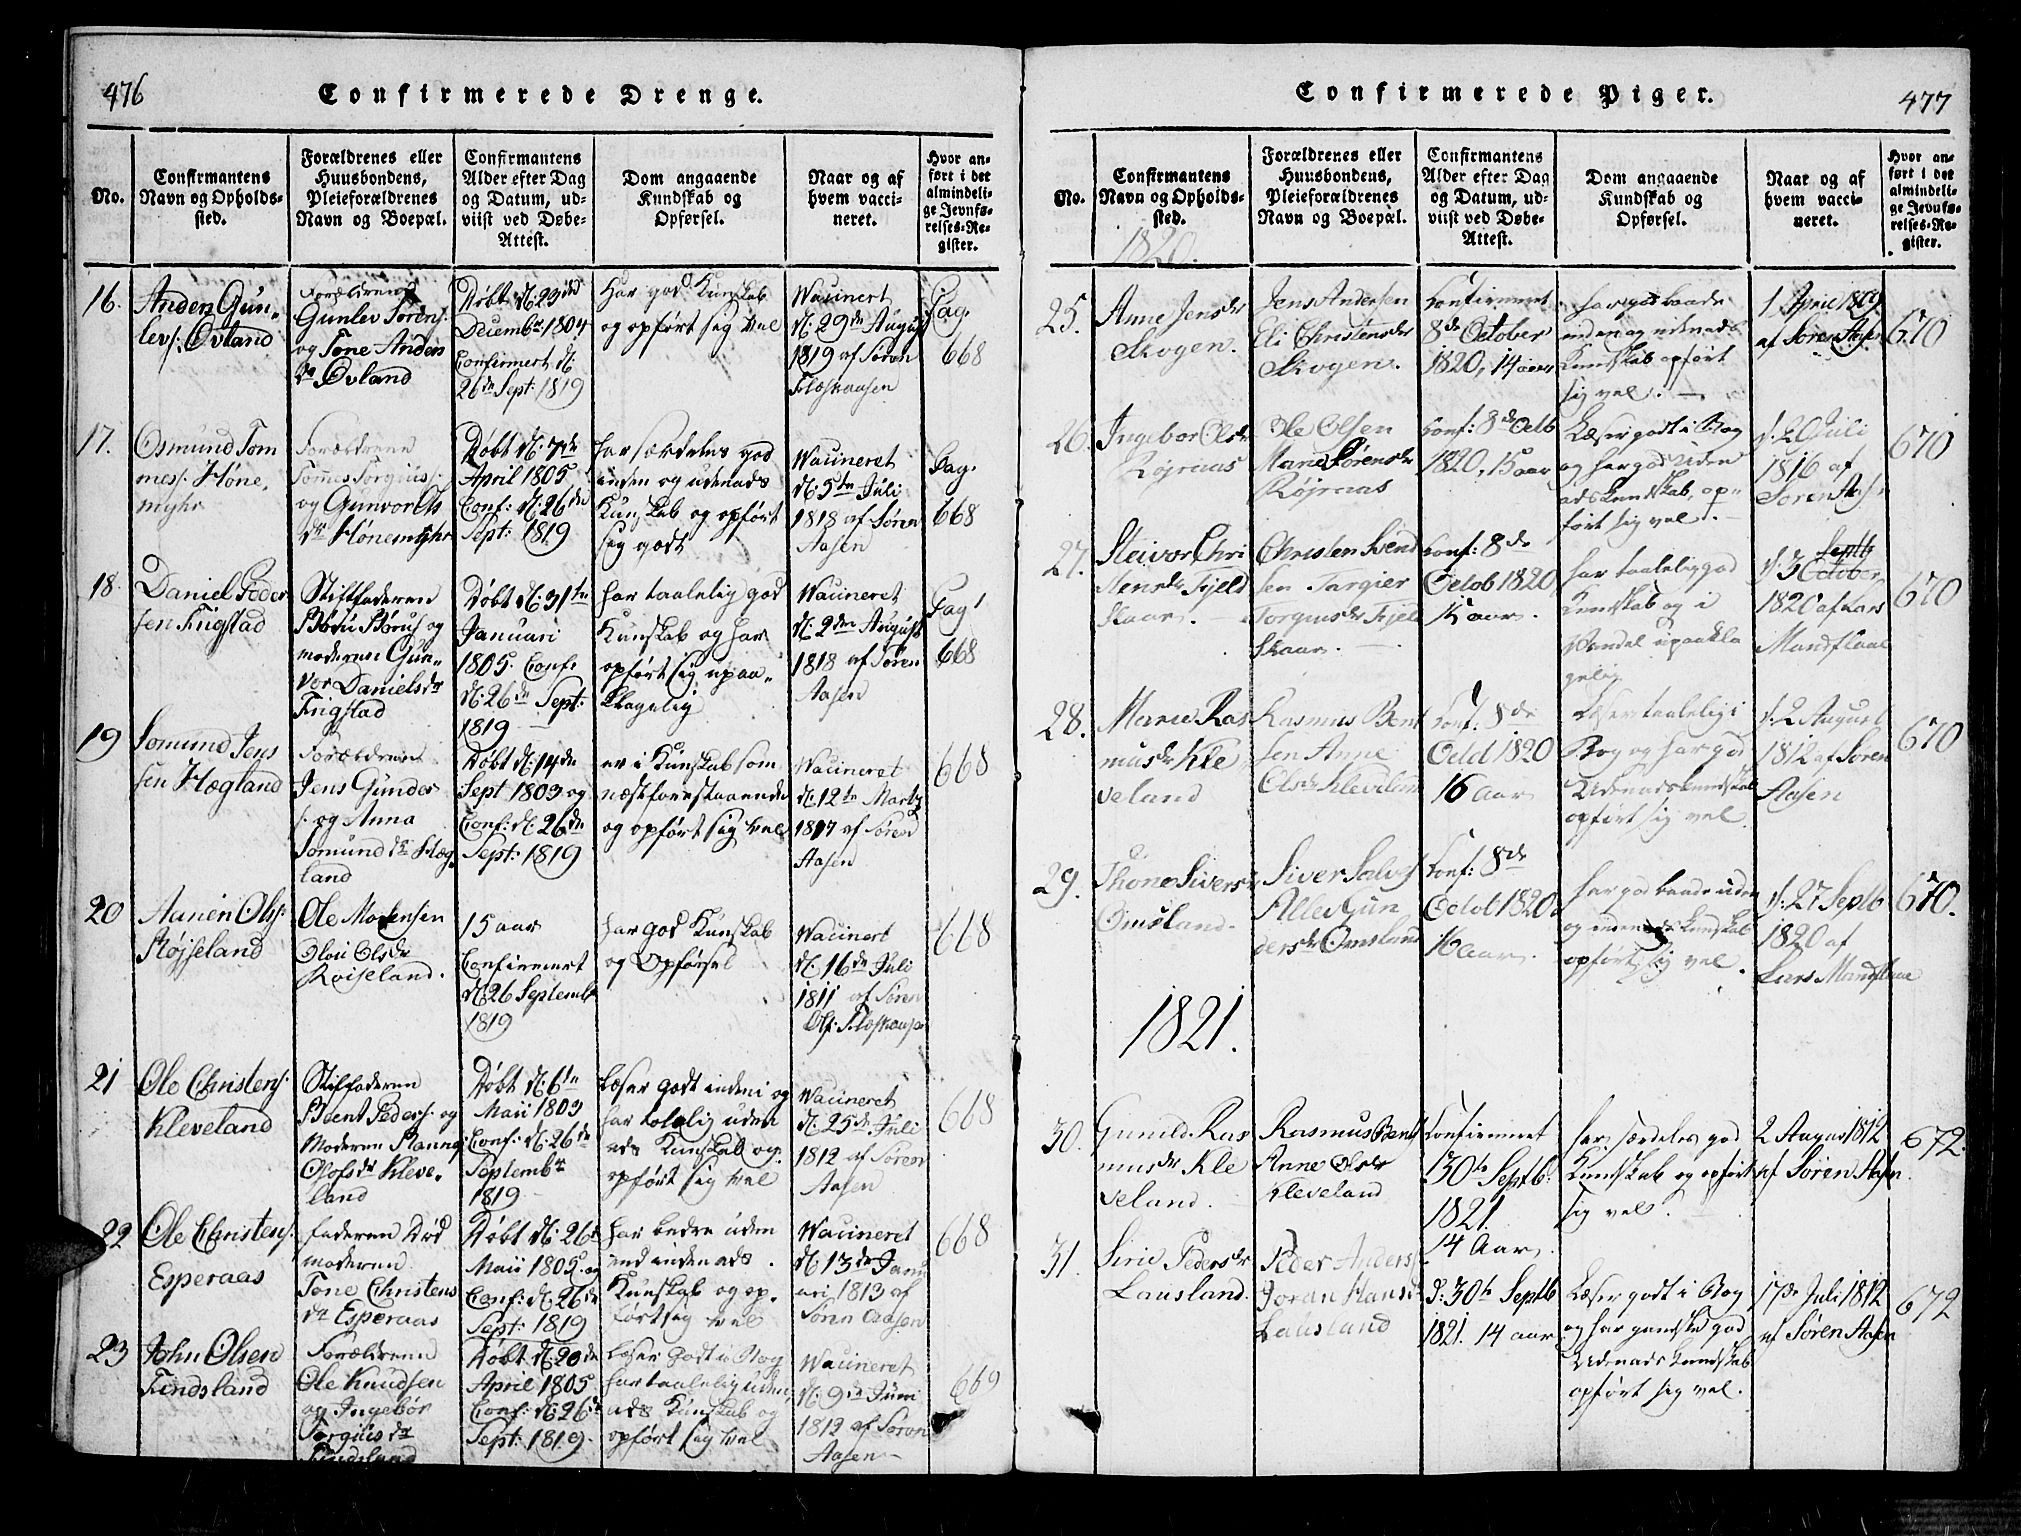 476
Confirmerede Drenge.
No.
Confirmantens
Navn og Opholds-
sted.
Forældrenes eller
Huusbondens,
Pleieforældrenes
Navn og Boepæl.
Confirmantens
Alder efter Dag
og Datum, ud-
viist ved Døbe-
Attest.
Dom angaaende
Kundskab og
Opførsel.
Naar og af
hvem vacci-
neret.
Hvor an-
ført i det
almindeli-
ge Jevnfø-
relses-Re-
gister.
16.
Anders Gun-
levs: Øvland
Forældrene
Gunlev Torens:
og Tone Anders
dr Øvland
Døbt d: 23de
Decembr 1804
Confirmert d:
26de Sept: 1819
Har god Kunskab
og opført sig vel
Waccinert
d: 29de August
1819 af Søren
Pag.
668
17.
Osmund Tom
mes: Høne,
myhr
Forældrene
Tommes Torgius:
og Gunvor Ols
dr Hønemyhr
Døbt d: 7de
April 1805
Conf: d: 26de
Sept: 1819
har særdeles god
inden og udenads
Kunskab og opført
sig godt
Waccineret
d: 5te Juli
1818 af Søren
Aasen
Pag.
668
18.
Daniel Peder
sen Frigstad
Stiffaderen
Børu Børus: og
moderen Gun-
vor Daniels dr
Frigstad
Døbt d: 31te
Januari
1805. Conf:
d: 26de Sept:
1819
har taalelig god
Kunskab og har
opført sig upaa-
klagelig
Waccineret
d: 2den August
1818 af Søren
Aasen
Pag.
668
19
Somund Jens
sen Hægland
Forældrene
Jens Gunder
s: og Anna
Somund dr Hæg-
land
Døbt d: 14de
Sept 1803 og
Conf: d: 26de
Sept: 1819
er i Kunskab som
næstforestaaende
og opført sig vel
Waccineret
d: 12te Marty
1817 af Søren
Aasen
668
20
Aanen Ols:
Røjseland
Ole Mortensen
Olsdr
Roiseland.
15 aar
Confirmert
d: 26 Septembr
1819
har god Kunskab
og Opførsel
Waccinert
d: 16de Juli
1811 af Søren
668
21
Ole Christens:
Kleveland
Stiffaderen
Bent Peders: og
Moderen
Olofs dr Kleve-
land
Døbt d: 6te
Maii 1803
Conf: d: 26de
Septembr
1819
Læser godt indeni og
har tolelig uden
ads Kunskab og
opført sig vel
Waccineret
d: 25de Juli
1812 af Søren
Aasen
668
22
Ole Christens:
Esperaas
faderen død
moderen
Tone Christens
dr Esperaas
Døbt d: 26de
Maii 1805. og
Conf: d: 26de
Sept: 1819
har bedre uden
end indenads
Kunskab og op-
ført sig vel
Waccineret
d: 13de Janu
ari 1813 af
Søren Aasen
668
23
John Olsen
Findsland
Forældrene
Ole Knudsen
og Ingebor
Torgius dr
Findsland
Døbt d: 20de
April 1805
Conf: d: 26de
Sept: 1819.
læser godt i Bog
har taalelig uden
ads Kunskab og
opført sig vel
Waccineret
d: 9de Juni
1812 af Søren
Aasen
669
Confirmerede Piger.
477
No.
Confirmantens
Navn og Opholds-
sted.
Forældrenes eller
Huusbondens,
Pleieforældrenes
Navn og Boepæl.
Confirmantens
Alder efter Dag
og Datum, ud-
viist ved Døbe-
Attest.
Dom angaaende
Kundskab og
Opførsel.
Naar og af
hvem vacci-
neret.
Hvor an-
ført i det
almindeli-
ge Jevnfø-
relses-Re-
gister.
1820.
25.
Anne Jensdr
Skogen.
Jens Andersen
Eli Christensdr
Skogen.
Confirmeret
8de October
1820, 14 aar
har god baade
inden og udenads
Kundskab opført
sig vel.
af Søren Aasen
670
26.
Ingebor Olsdr
Røjraas
Ole Olsen
Marie Sørensdr
Røjraas
Conf: 8de Octb
1820, 15 aar
Læser godt i Bog
og har god Uden
ads Kundskab, op-
ført sig vel.
d. 20 Juli
1816 af
Søren Aasen
670
27.
Steivor Chri
stensdr Fjeld
skaar.
Christen Svend
sen Targier
Torgiusdr Fjeld
skaar.
Conf: 8de
Octob 1820
15 aar.
har taalelig god
Kundskab og i
Vandel upaakla
gelig
Septb
d. 3 October
1820 af Lars
Mandflaae
670
28.
Marie Ras
musdr Kle
veland
Rasmus Bent
sen Anne
Olsdr Kleveland
Conf: 8de
Octob 1820
16 Aar
Læser taalelig i
Bog og har god
Udenads kundskab
opført sig vel.
d. 2 August
1812 af Søren
Aasen
670
29.
Thone Siversdr
Omsland.
Siver Salvs:
Alled Gun
dersdr Omsland
Conf: 8de
Octob 1820
16 Aar.
har god baade uden
og indenads kundskab
opført sig vel.
d. 27 Septb
1820 af
Lars Mandflaae
670.
1821.
30.
Gunild Ras
musdr Kle
veland.
Rasmus Bents:
Anne Olsdr
Kleveland
Confirmeret
30te Septb.
1821.
14 Aar.
har særdeles god
Kundskab og opført
sig vel.
2 August 1812
af Søren Aasen.
672.
31.
Sirie Pedersdr
Lausland.
Peder Anders:
Joran Hansdr
Lausland
d: 30te Septb
1821. 14 aar
Læser godt i Bog
og har ganske god
Udenads kundskab
opført sig vel.
17de Juli 1812
af Søren Aasen
672